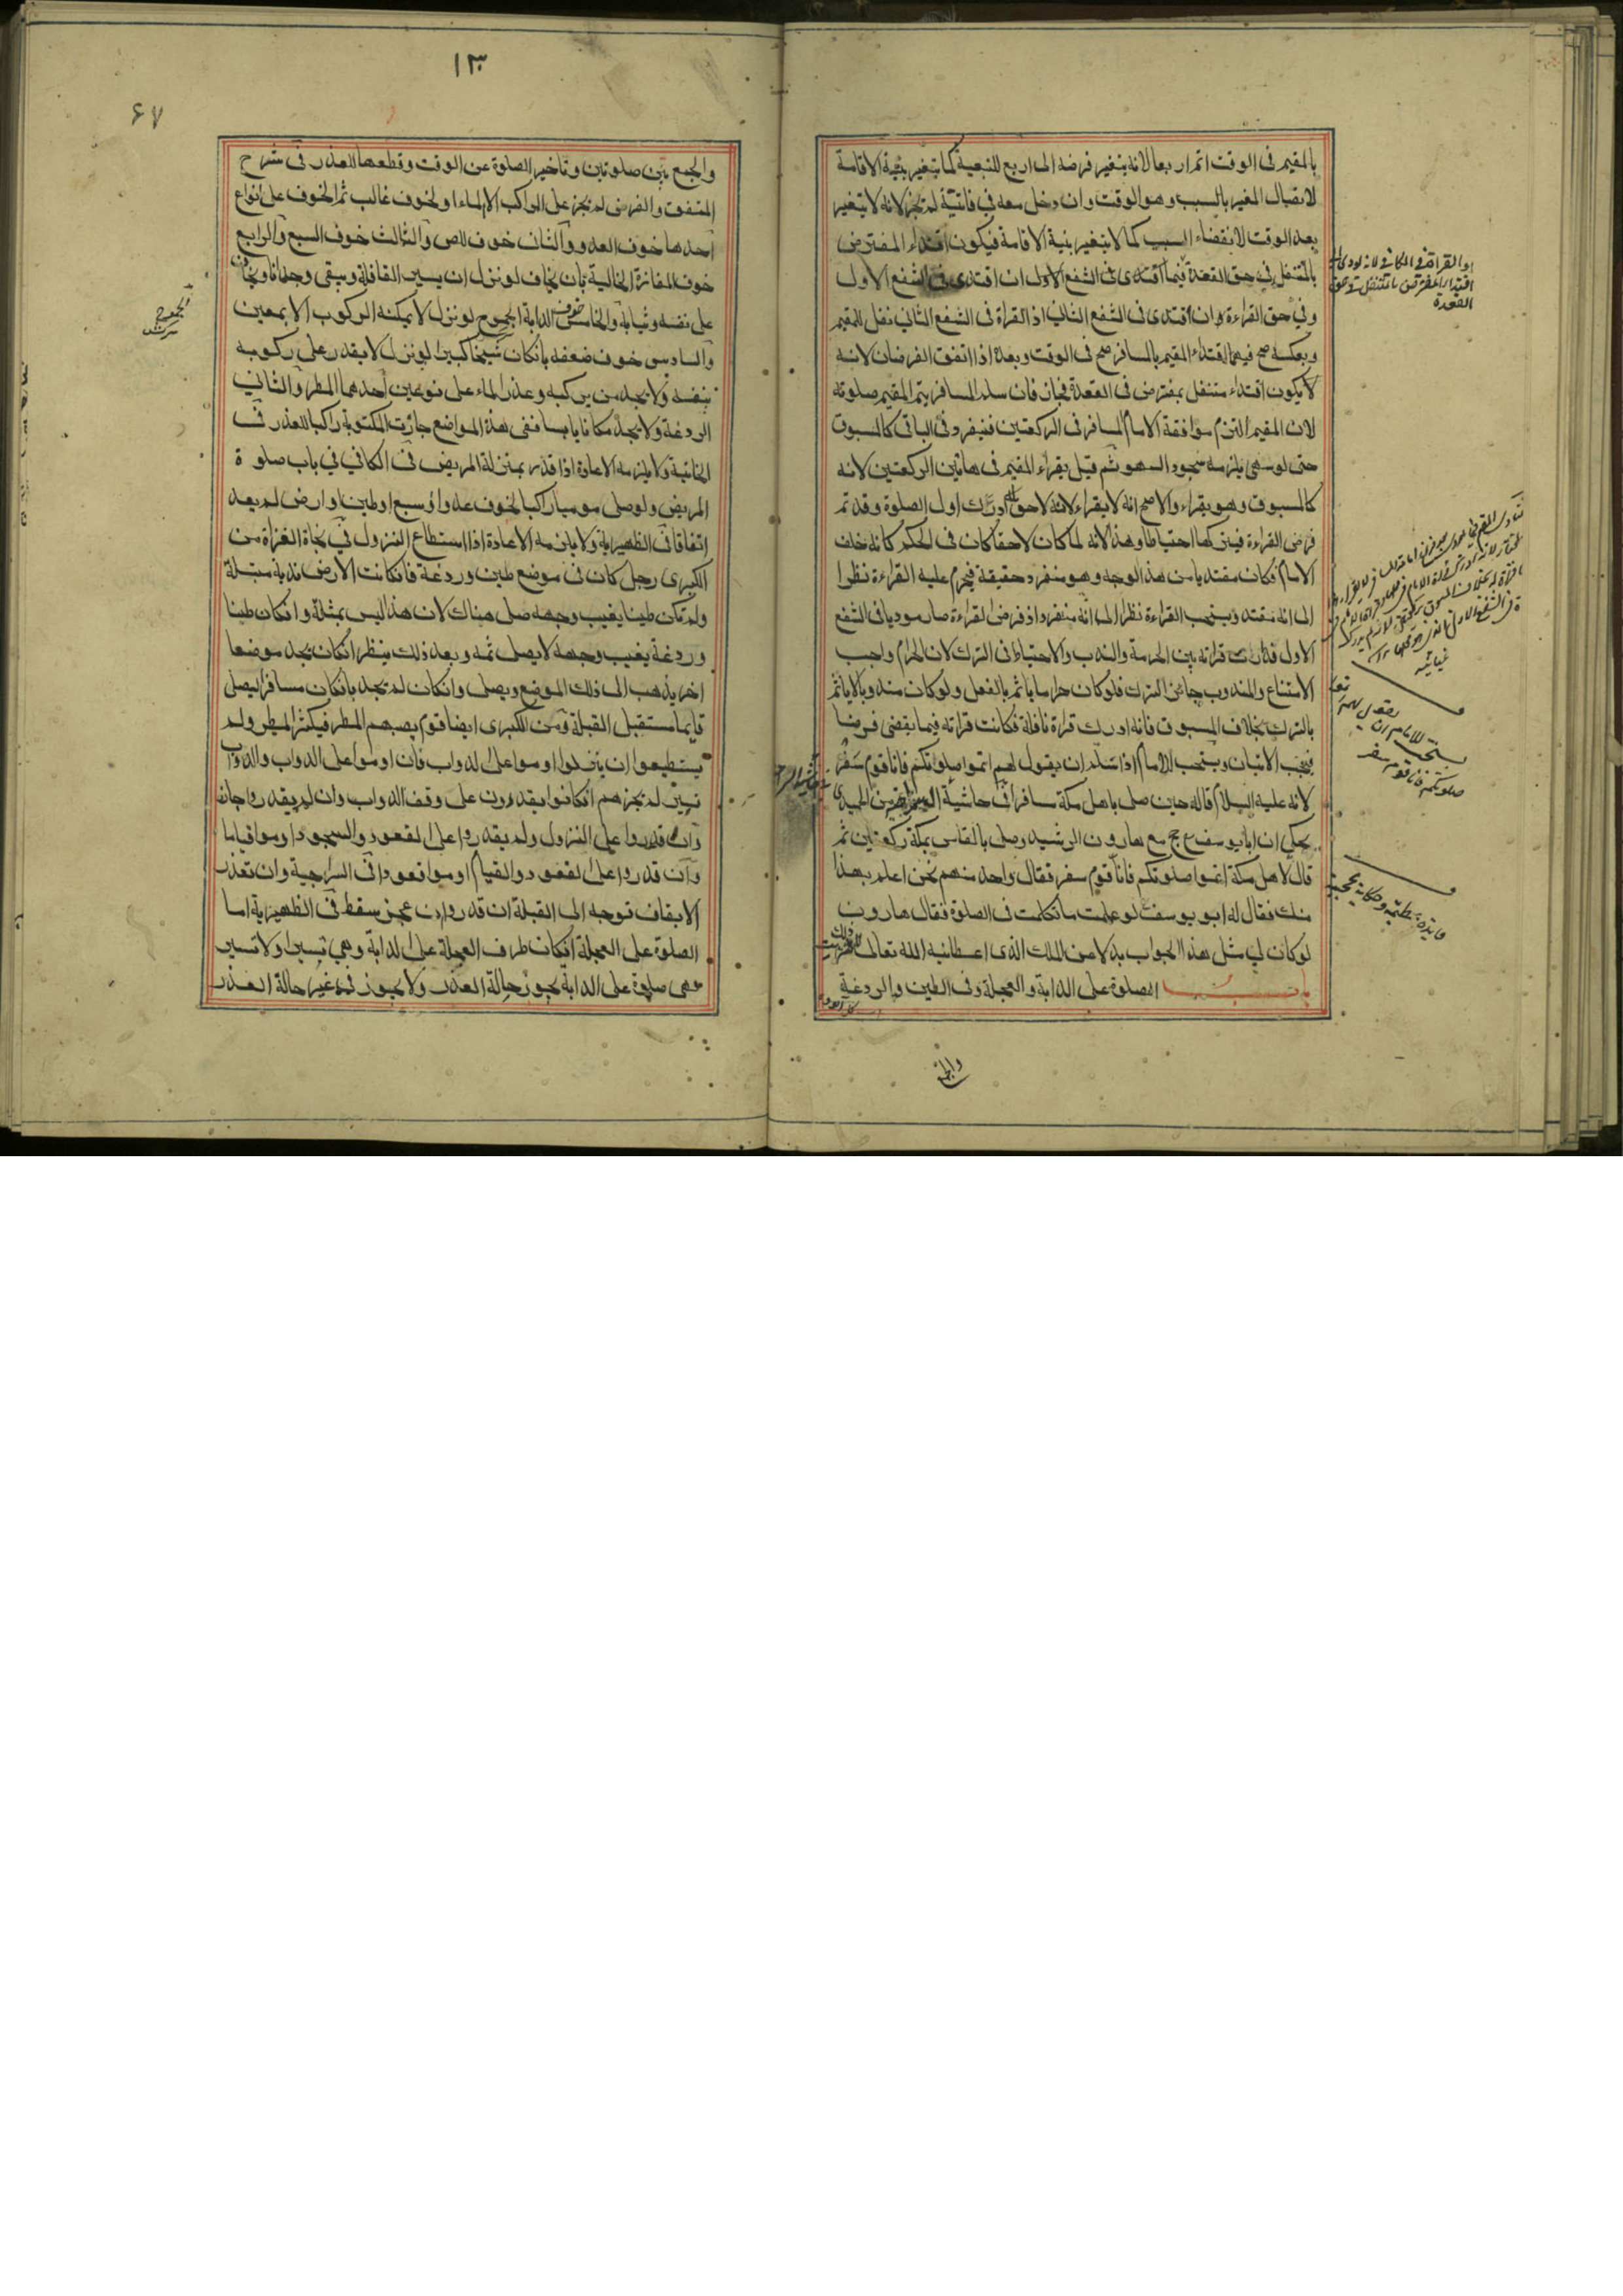 بالمقيم فى الوقت اتم اربعا لانه يتغير فرضه الى اربع للتبعية كما يتغير بنية الاقامة
لاتصال المغير بالسبب وهو الوقت وان دخل معه في فائتة لم تجز لانه لا يتغير
بعد الوقت لانقضاء السبب كما لا يتغير بنية الاقامة فيكون اقتداء المفترض
بالمتنفل في حق القعدة فيما اقتدى فى الشفع الاول ان اقتدى فى الشفع الاول
وفي حق القراءة وان اقتدى فى الشفع الثانى اذ القراة فى الشفع الثانى نفل للمقيم
وبعكسه صح فيهما اقتداء المقيم بالمسافر صح فى الوقت وبعده اذا اتفق الفرضان لانه
لا يكون اقتداء متنفل بمفترض فى القعدة فجاز فان سلم المسافر يتم المقيم صلوته
لان المقيم التزم موافقة الامام المسافر فى الركعتين فينفرد فى الباقى كالمسبوق
حتى لو سهى يلزمه سجود السهو ثم قيل يقراء المقيم فى هاتين الركعتين لانه
كالمسبوق وهو يقراء والاصح انه لا يقراء لانه لاحق ادرك اول الصلوة وقد تم
فرض القراءة فيتركها احتياطا وهذا لانه لما كان لاحقا كان فى الحكم كانه خلف
الامام فكان مقتديا من هذا الوجه وهو منفرد حقيقة فيحرم عليه القراءة نظرا
الى انه مقتد ويستحب القراءة نظرا الى انه منفرد اذ فرض القراءة صار موديا فى الشفع
الاول فدارت قراته بين الحرمة والندب والاحتياط فى الترك لان الحرام واجب
الامتناع والمندوب جائز الترك فلو كان حراما ياثم بالفعل ولو كان مندوبا لا ياثم
بالترك بخلاف المسبوق فانه ادرك قراة نافلة فكانت قراته فيما يقضى فرضا
فيجب الاتيان ويستحب للامام اذا سلم ان يقول لهم اتموا صلوتكم فانا قوم سفر
لانه عليه السلام قاله حين صلى باهل مكة مسافرا فى حاشية
يحكى ان ابا يوسف حج مع هارون الرشيد وصلى بالناس بمكة ركعتين ثم
قال لاهل مكة اتموا صلوتكم فانا قوم سفر فقال واحد منهم نحن اعلم بهذا
منك فقال له ابو يوسف لو علمت ما تكلمت فى الصلوة فقال هارون
لو كان لي مثل هذا الجواب بدلا من الملك الذى اعطانيه الله تعالى
باب الصلوة على الدابة والعجلة وفى الطين والردغة
والجمع
القعدة
يستحب للامام ان يقول
صلوتكم فانا قوم سفر
١٣
٦٧
والجمع بين صلوتين وتاخير الصلوة عن الوقت وقطعها للعذر فى شرح
المتفق والفرض لم تجز على الراكب الا لماء او لخوف غالب ثم الخوف على انواع
احدها خوف العدو والثانى خوف اللص والثالث خوف السبع والرابع
خوف المفازة الخالية بان يخاف لو نزل ان يسير القافلة ويبقى وحده
على نفسه وثيابه والخامس خوف الدابة الجموح لو نزل لا يمكنه الركوب الا بمعين
والسادس خوف ضعفه بان كان شيخا كبيرا لو نزل لا يقدر على ركوبه
بنفسه ولا يجد من يركبه وعذر الماء على نوعين احدهما المطر والثانى
الردغة ولا يجد مكانا يابسا ففى هذه المواضع جازت المكتوبة راكبا للعذر فى
الخانية ولا يلزمه الاعادة اذا قدر بمنزلة المريض فى الكافي في باب صلوة
المريض ولو صلى موميا راكبا لخوف عدو او سبع او طين او ارض لم يعد
اتفاقا فى الظهيرية ولا يلزمه الاعادة اذا استطاع النزول في نجاة الغزاة من
الكبرى رجل كان فى موضع طين وردغة فان كانت الارض ندية مبتلة
ولم تكن طينا يغيب وجهه صلى هناك لان هذا ليس بمثلة وان كان طينا
وردغة يغيب وجهه لا يصلى ثمه وبعد ذلك ينظر ان كان يجد موضعا
اخر يذهب الى ذلك الموضع ويصلى وان كان لم يجد بان كان مسافرا يصلى
قايما مستقبل القبلة ومن الكبرى ايضا قوم يصبهم المطر فيكثر المطر ولم
يستطيعوا ان ينزلوا اوموا على الدواب فان اوموا على الدواب والدواب
تسير لم تجزهم ان كانوا يقدرون على وقف الدواب وان لم يقدروا جاز
وان قدروا على النزول ولم يقدروا على القعود والسجود اوموا قياما
وان قدروا على القعود والقيام اوموا قعودا فى السراجية وان تعذر
الايقاف توجه الى القبلة ان قدر وان عجز سقط فى الظهيرية اما
الصلوة على العجلة ان كان طرف العجلة على الدابة وهي تسير او لا تسير
فهى صلوة على الدابة يجوز حالة العذر ولا يجوز فى غير حالة العذر
الجموح